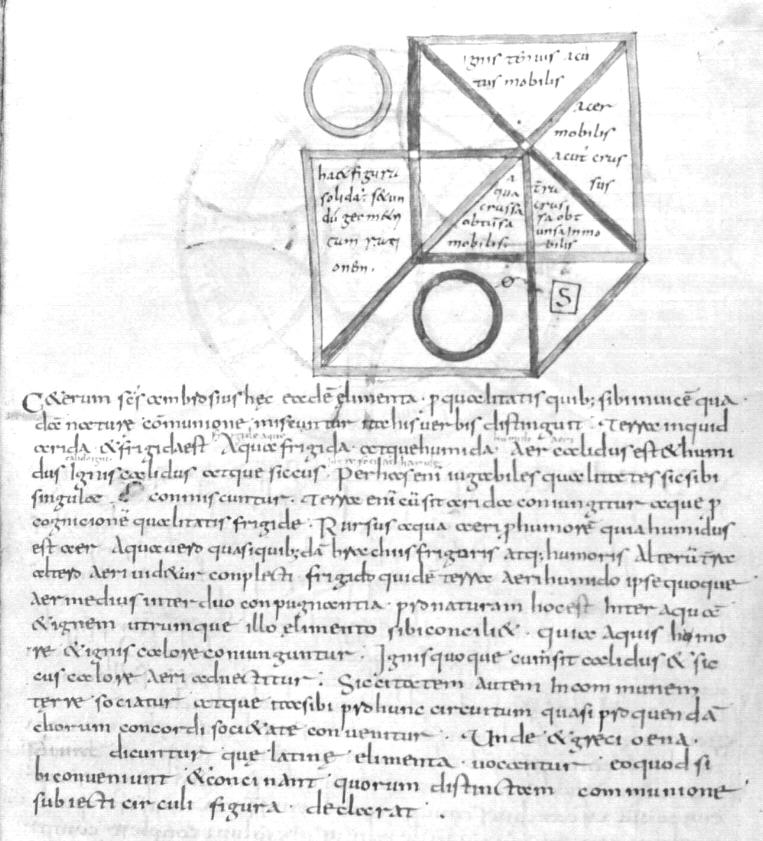 ignis tenuis acu
tus mobilis
acer
mobilis
acut' crus
sus
haec figura
solida ÷ secun
dū geometri
cum
onēm .
a
qua
crassa
obtunsa
mobilis
t̄rra
crus
sa obt
unsa inmo
bilis
S
Cęterum scs ambrosius hęc eadē elimenta . p qualitatis quib; sibi inuicē qua
dā naturę cōmunione miscuntur ita his uerbis distinguit . Terra inquid
arida & frigida est Aqua frigida atque humida . Aer calidus est & humi
dus Ignis calidus atque siccus . Per has enī iugabiles qualitates sic sibi
singula commiscuntur . Terra enī cū sit arida coniungitur aquę p
cognicionē qualitatis frigidę . Rursus aqua aeri p humorē quia humidus
est aer Aqua uero quasi quib;dā brachiis frigoris atq; humoris Alterū t̄rrā
altero Aeri uidetur conplecti . frigido quidē terrā Aeri humido ipse quoque
Aer medius inter duo conpugnantia . pro naturam hoc est Inter aquā
& ignem utrumque illo elimento sibi conciliat . quia Aquis humo
re & ignis calore coniunguntur . Ignis quoque cum sit calidus & sic
cus calore Aeri adnectitur . Siccitatem Autem In communem
terrę sociatur atque ita sibi pro hunc circuitum quasi pro quendā
chorum concordi societate conveniunt . Unde & greci oena .
dicuntur que latine elimenta uocantur eo quod si
bi conveniunt & concinant quorum distinctam communione
subiecti circuli figura declarat .